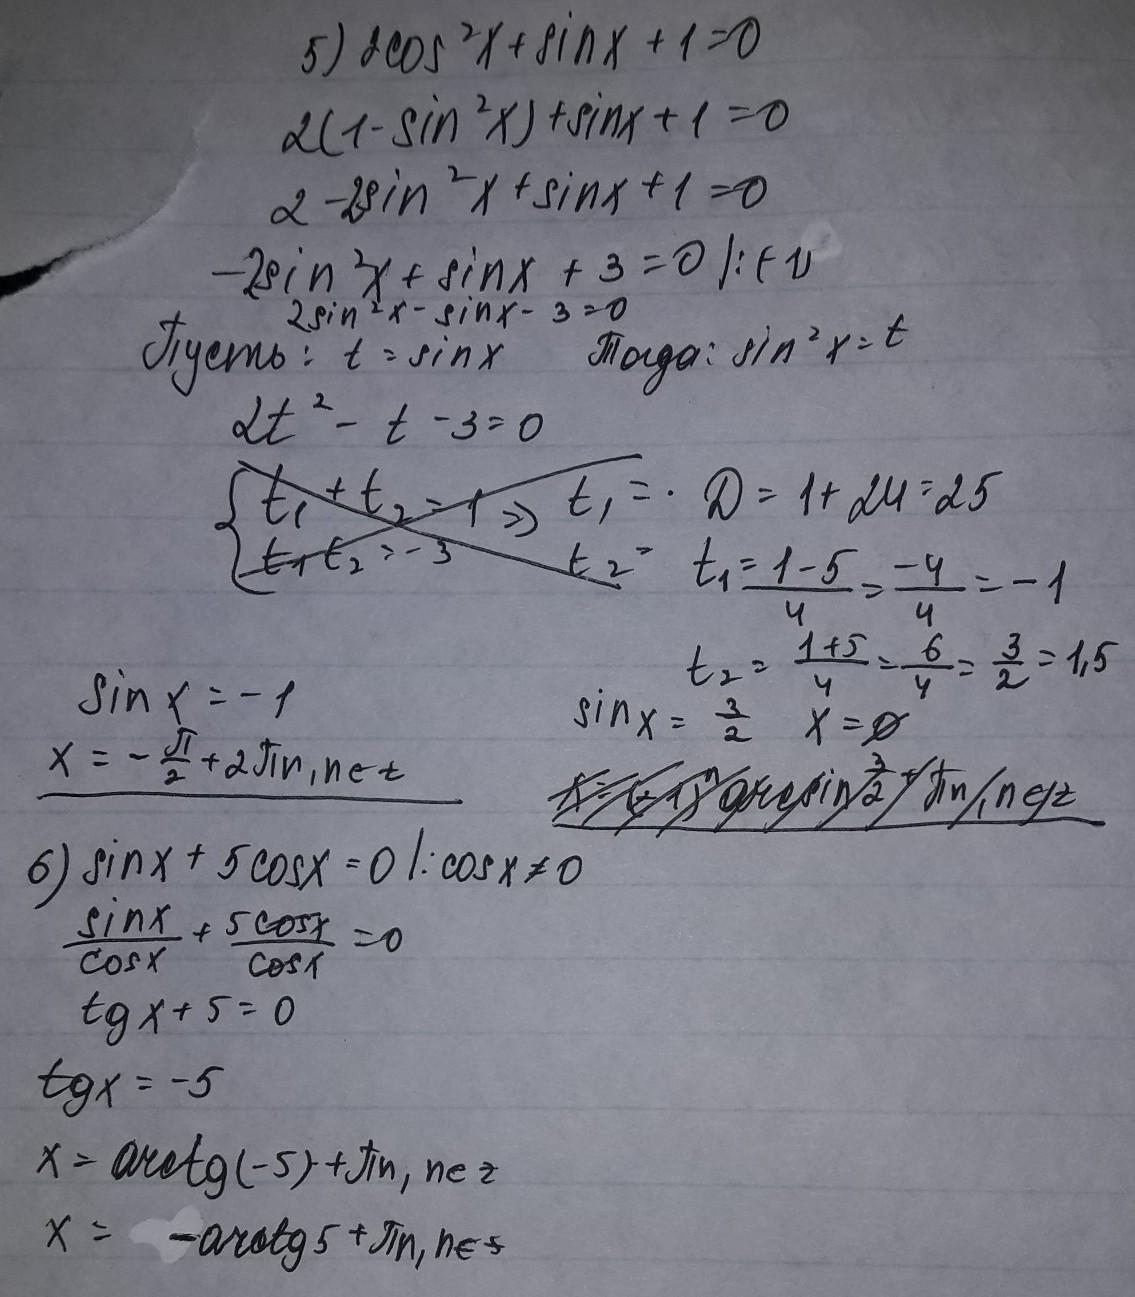 5) 2cos²x + sinx + 1 = 0
2(1 - sin²x) + sinx + 1 = 0
2 - 2sin²x + sinx + 1 = 0
-2sin²x + sinx + 3 = 0 |:(-1)
2sin²x - sinx - 3 = 0
Пусть: t = sinx Тогда: sin²x = t
2t² - t - 3 = 0
t₁ + t₂ = 1 => t₁ = . D = 1 + 24 = 25
t₁ t₂ = -3 t₂ = t₁ = (1-5)/4 = -4/4 = -1
t₂ = (1+5)/4 = 6/4 = 3/2 = 1,5
sin x = -1 sin x = 3/2 x = ∅
x = -π/2 + 2πn, n∈z x = (-1)ⁿ arcsin 3/2 + πn, n∈z
6) sinx + 5cosx = 0 |: cosx ≠ 0
sinx/cosx + 5cosx/cosx = 0
tgx + 5 = 0
tgx = -5
x = arctg(-5) + πn, n∈z
x = -arctg5 + πn, n∈z